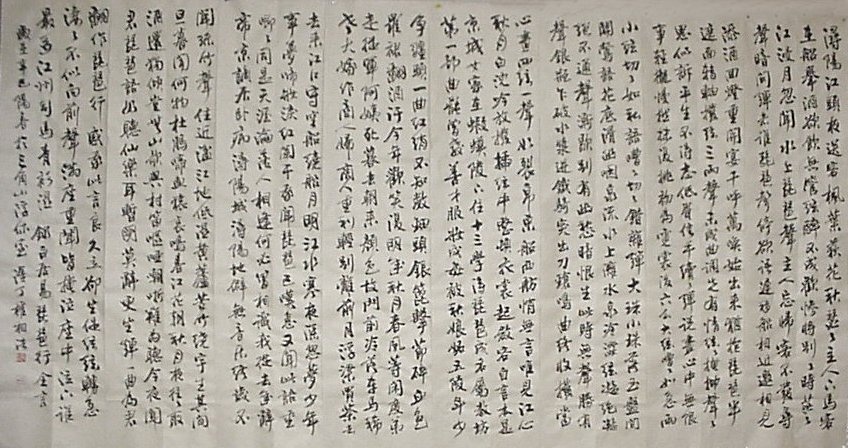 潯陽江頭夜送客楓葉荻花秋瑟瑟主人下馬客
在船舉酒欲飲無管絃醉不成歡慘將別別時茫茫
江浸月忽聞水上琵琶聲主人忘歸客不發尋
聲暗問彈者誰琵琶聲停欲語遲移船相近邀相見
添酒回燈重開宴千呼萬喚始出來猶抱琵琶半
遮面轉軸撥絃三兩聲未成曲調先有情絃絃掩抑聲聲
思似訴平生不得志低眉信手續續彈說盡心中無限
事輕攏慢撚抹復挑初為霓裳後六么大絃嘈嘈如急雨
小絃切切如私語嘈嘈切切錯雜彈大珠小珠落玉盤間
關鶯語花底滑幽咽泉流水下灘水泉冷澀絃凝絕凝
絕不通聲漸歇別有幽愁暗恨生此時無聲勝有
聲銀瓶乍破水漿迸鐵騎突出刀鎗鳴曲終收撥當
心畫四絃一聲如裂帛東船西舫悄無言唯見江心
秋月白沈吟放撥插絃中整頓衣裳起斂容自言本是
京城女家在蝦蟆陵下住十三學得琵琶成名屬教坊
第一部曲罷常教善才服妝成每被秋娘妒五陵年少
爭纏頭一曲紅綃不知數鈿頭銀篦擊節碎血色
羅裙翻酒汙今年歡笑復明年秋月春風等閑度弟
走從軍阿姨死暮去朝來顏色故門前冷落車馬稀
老大嫁作商人婦商人重利輕別離前月浮梁買茶去
去來江口守空船繞船月明江水寒夜深忽夢少年
事夢啼妝淚紅闌干我聞琵琶已嘆息又聞此語重
唧唧同是天涯淪落人相逢何必曾相識我從去年辭
帝京謫居臥病潯陽城潯陽地僻無音樂終歲不
聞絲竹聲住近湓江地低濕黃蘆苦竹繞宅生其間
旦暮聞何物杜鵑啼血猿哀鳴春江花朝秋月夜往往取
酒還獨傾豈無山歌與村笛嘔啞嘲哳難為聽今夜聞
君琵琶語如聽仙樂耳暫明莫辭更坐彈一曲為君
翻作琵琶行感我此言良久立卻坐促絃絃轉急
淒淒不似向前聲滿座重聞皆掩泣座中泣下誰
最多江州司馬青衫濕 錄白居易琵琶行全首
辛巳